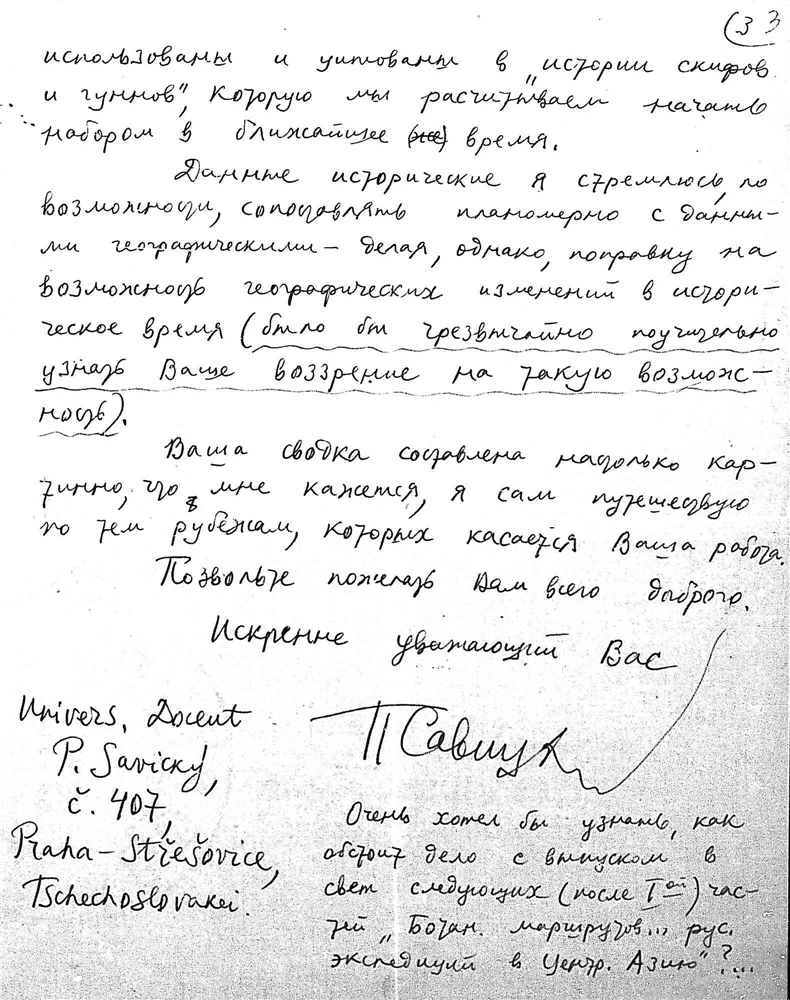 (33
использованы и цитованы в „истории скифов
и гуннов“, которую мы расчитываем начать
набором в ближайшее (же) время.
Данные исторические я стремлюсь, по
возможности, сопоставлять планомерно с данны-
ми географическими — делая, однако, поправку на
возможность географических изменений в истори-
ческое время (было бы чрезвычайно поучительно
узнать Ваше воззрение на такую возмож-
ность).
Ваша сводка составлена настолько кар-
тинно, что мне кажется, я сам путешествую
по тем рубежам, которых касается Ваша работа.
Позвольте пожелать Вам всего доброго.
Искренне уважающий Вас
П Савицк
Univers. Docent
P. Savický,
č. 407,
Praha-Střešovice,
Tschechoslovakei.
Очень хотел бы узнать, как
обстоит дело с выпуском в
свет следующих (после Iой) час-
тей „Ботан. маршрутов... рус.
экспедиций в Центр. Азию“?...